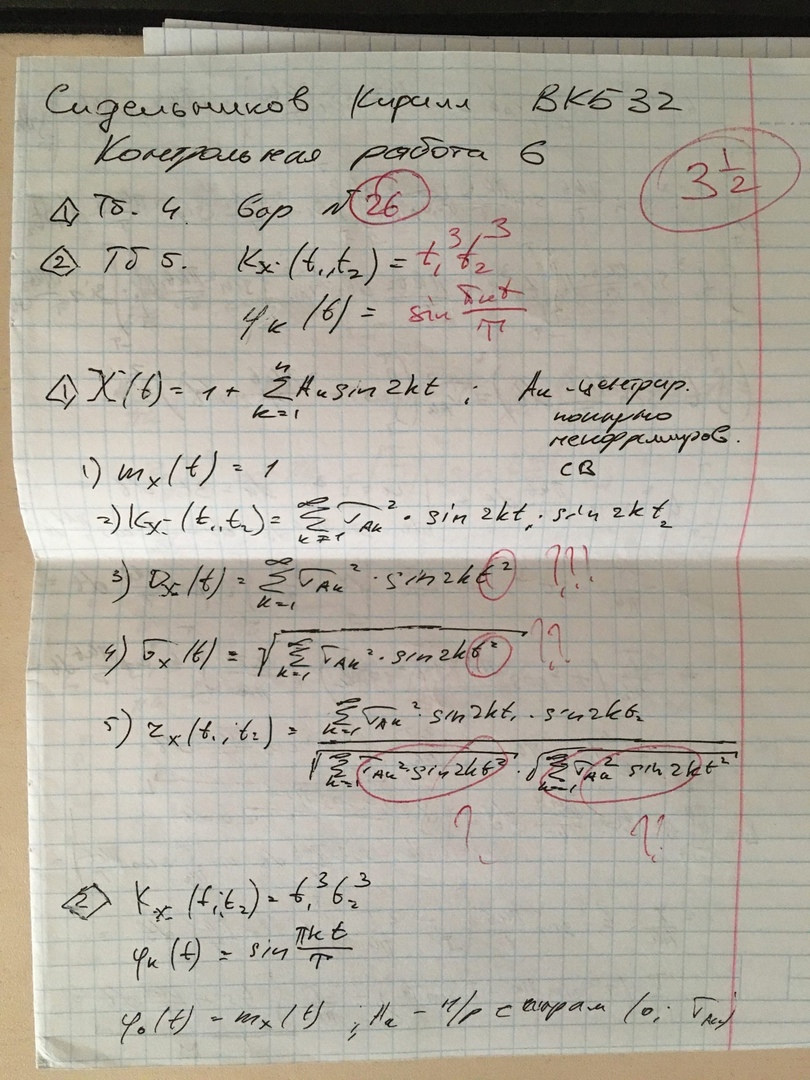 Сидельников Кирилл ВКБ32
Контрольная работа 6
3 1/2
① Тб. 4. Вар № 26
② Тб 5. Kx(t₁,t₂) = t₁³t₂³
φk(t) = sin πkt/T
① X(t) = 1 + ∑ₖ₌₁ⁿ Aк sin 2kt ; Aк - центрир.
попарно
некоррелиров.
СВ
1) mx(t) = 1
2) Kx(t₁,t₂) = ∑ₖ₌₁^∞ σAк² · sin 2kt₁ · sin 2kt₂
3) Dx(t) = ∑ₖ₌₁^∞ σAк² · sin 2kt² ???
4) σx(t) = √(∑ₖ₌₁^∞ σAк² · sin 2kt²) ??
5) rx(t₁;t₂) = (∑ₖ₌₁^∞ σAк² · sin 2kt₁ · sin 2kt₂) / (√(∑ₖ₌₁^∞ σAк² · sin 2kt²) · √(∑ₖ₌₁^∞ σAк² sin 2kt²))
? ?!
② Kx(t₁;t₂) = t₁³t₂³
φk(t) = sin πkt/T
φ₀(t) = mx(t) ; Aк - н/р с парам (0; σAк)